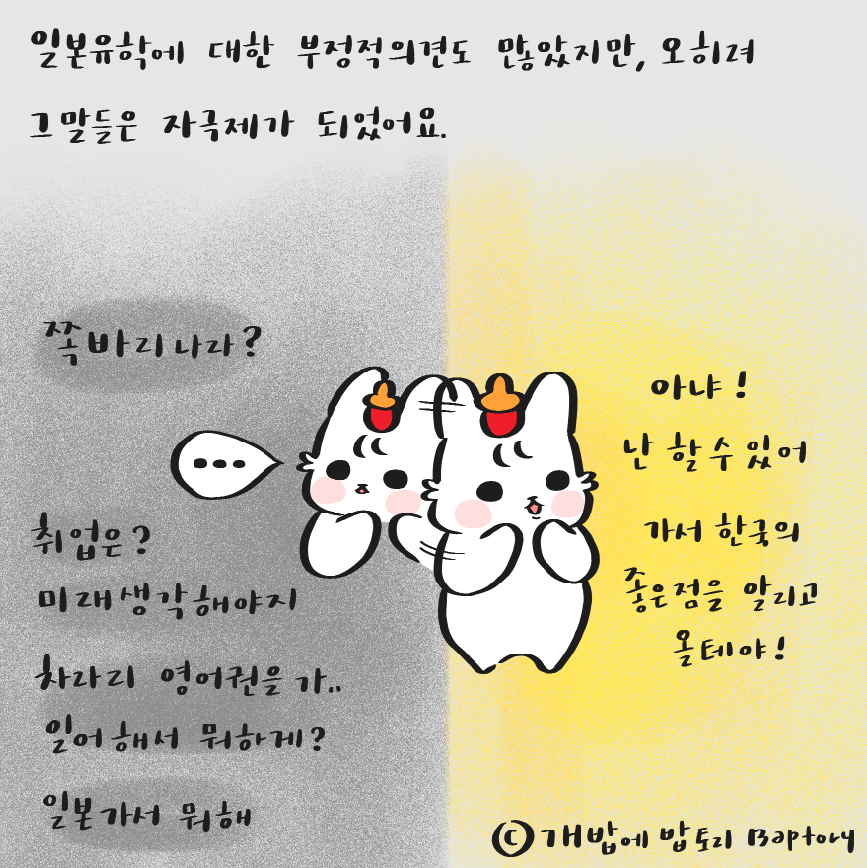 일본유학에 대한 부정적의견도 많았지만, 오히려
그말들은 자극제가 되었어요.
쪽바리나라?
...
취업은?
미래생각해야지
차라리 영어권을 가..
일어해서 뭐하게?
일본가서 뭐해
아냐!
난 할수있어
가서 한국의
좋은점을 알리고
올테야!
© 개밥에 밥토리 Baptory